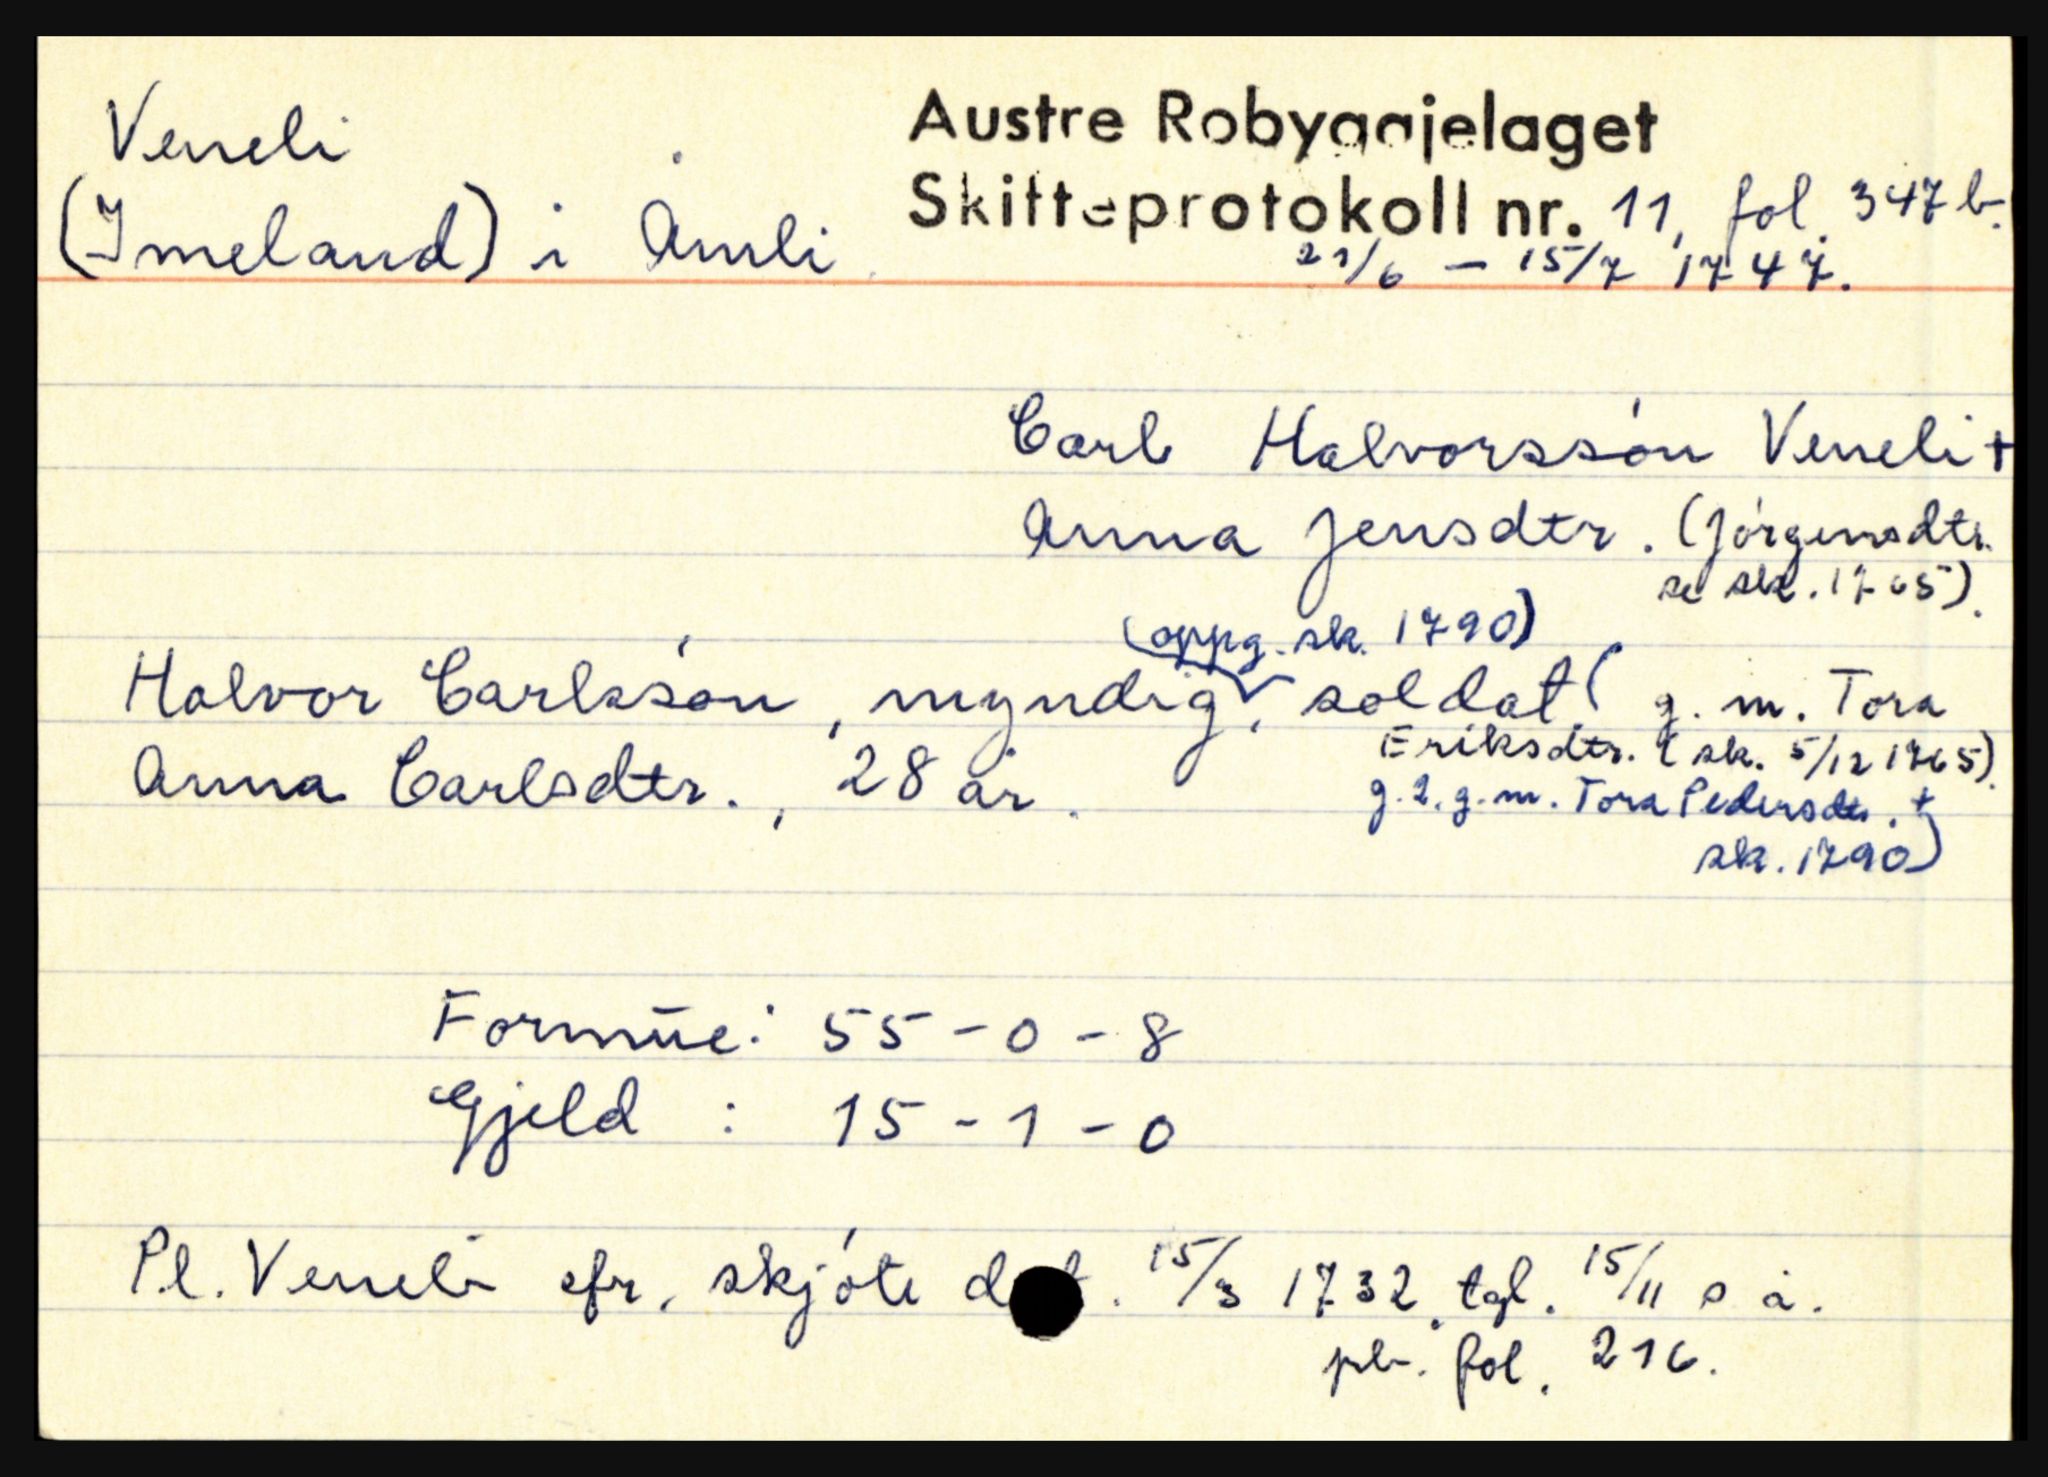 Veneli
(Imeland) i Åmli.
Austre Robyggjelaget
Skifteprotokoll nr. 11, fol. 347b.
21/6 – 15/7 1747.
Carl Halvorssón Veneli +
Anna Jensdtr. (Jórgensdtr.
se sk. 1765).
(oppg. sk. 1790)
Halvor Carlssón, myndig, soldat ( g. m. Tora
Eriksdtr. (sk. 5/12 1765).
Anna Carlsdtr., 28 år.
g. 2. g. m. Tora Pedersdtr. +
sk. 1790)
Formūe: 55 - 0 - 8
Gjeld : 15 - 1 - 0
Pl. Veneli efr. skjóte dat. 15/3 1732, tgl. 15/11 s å.
pb. fol. 216.